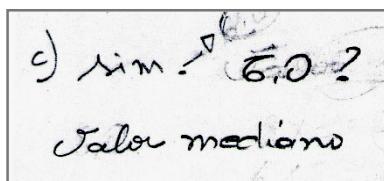 c) sim! 6,0?
Valor mediano